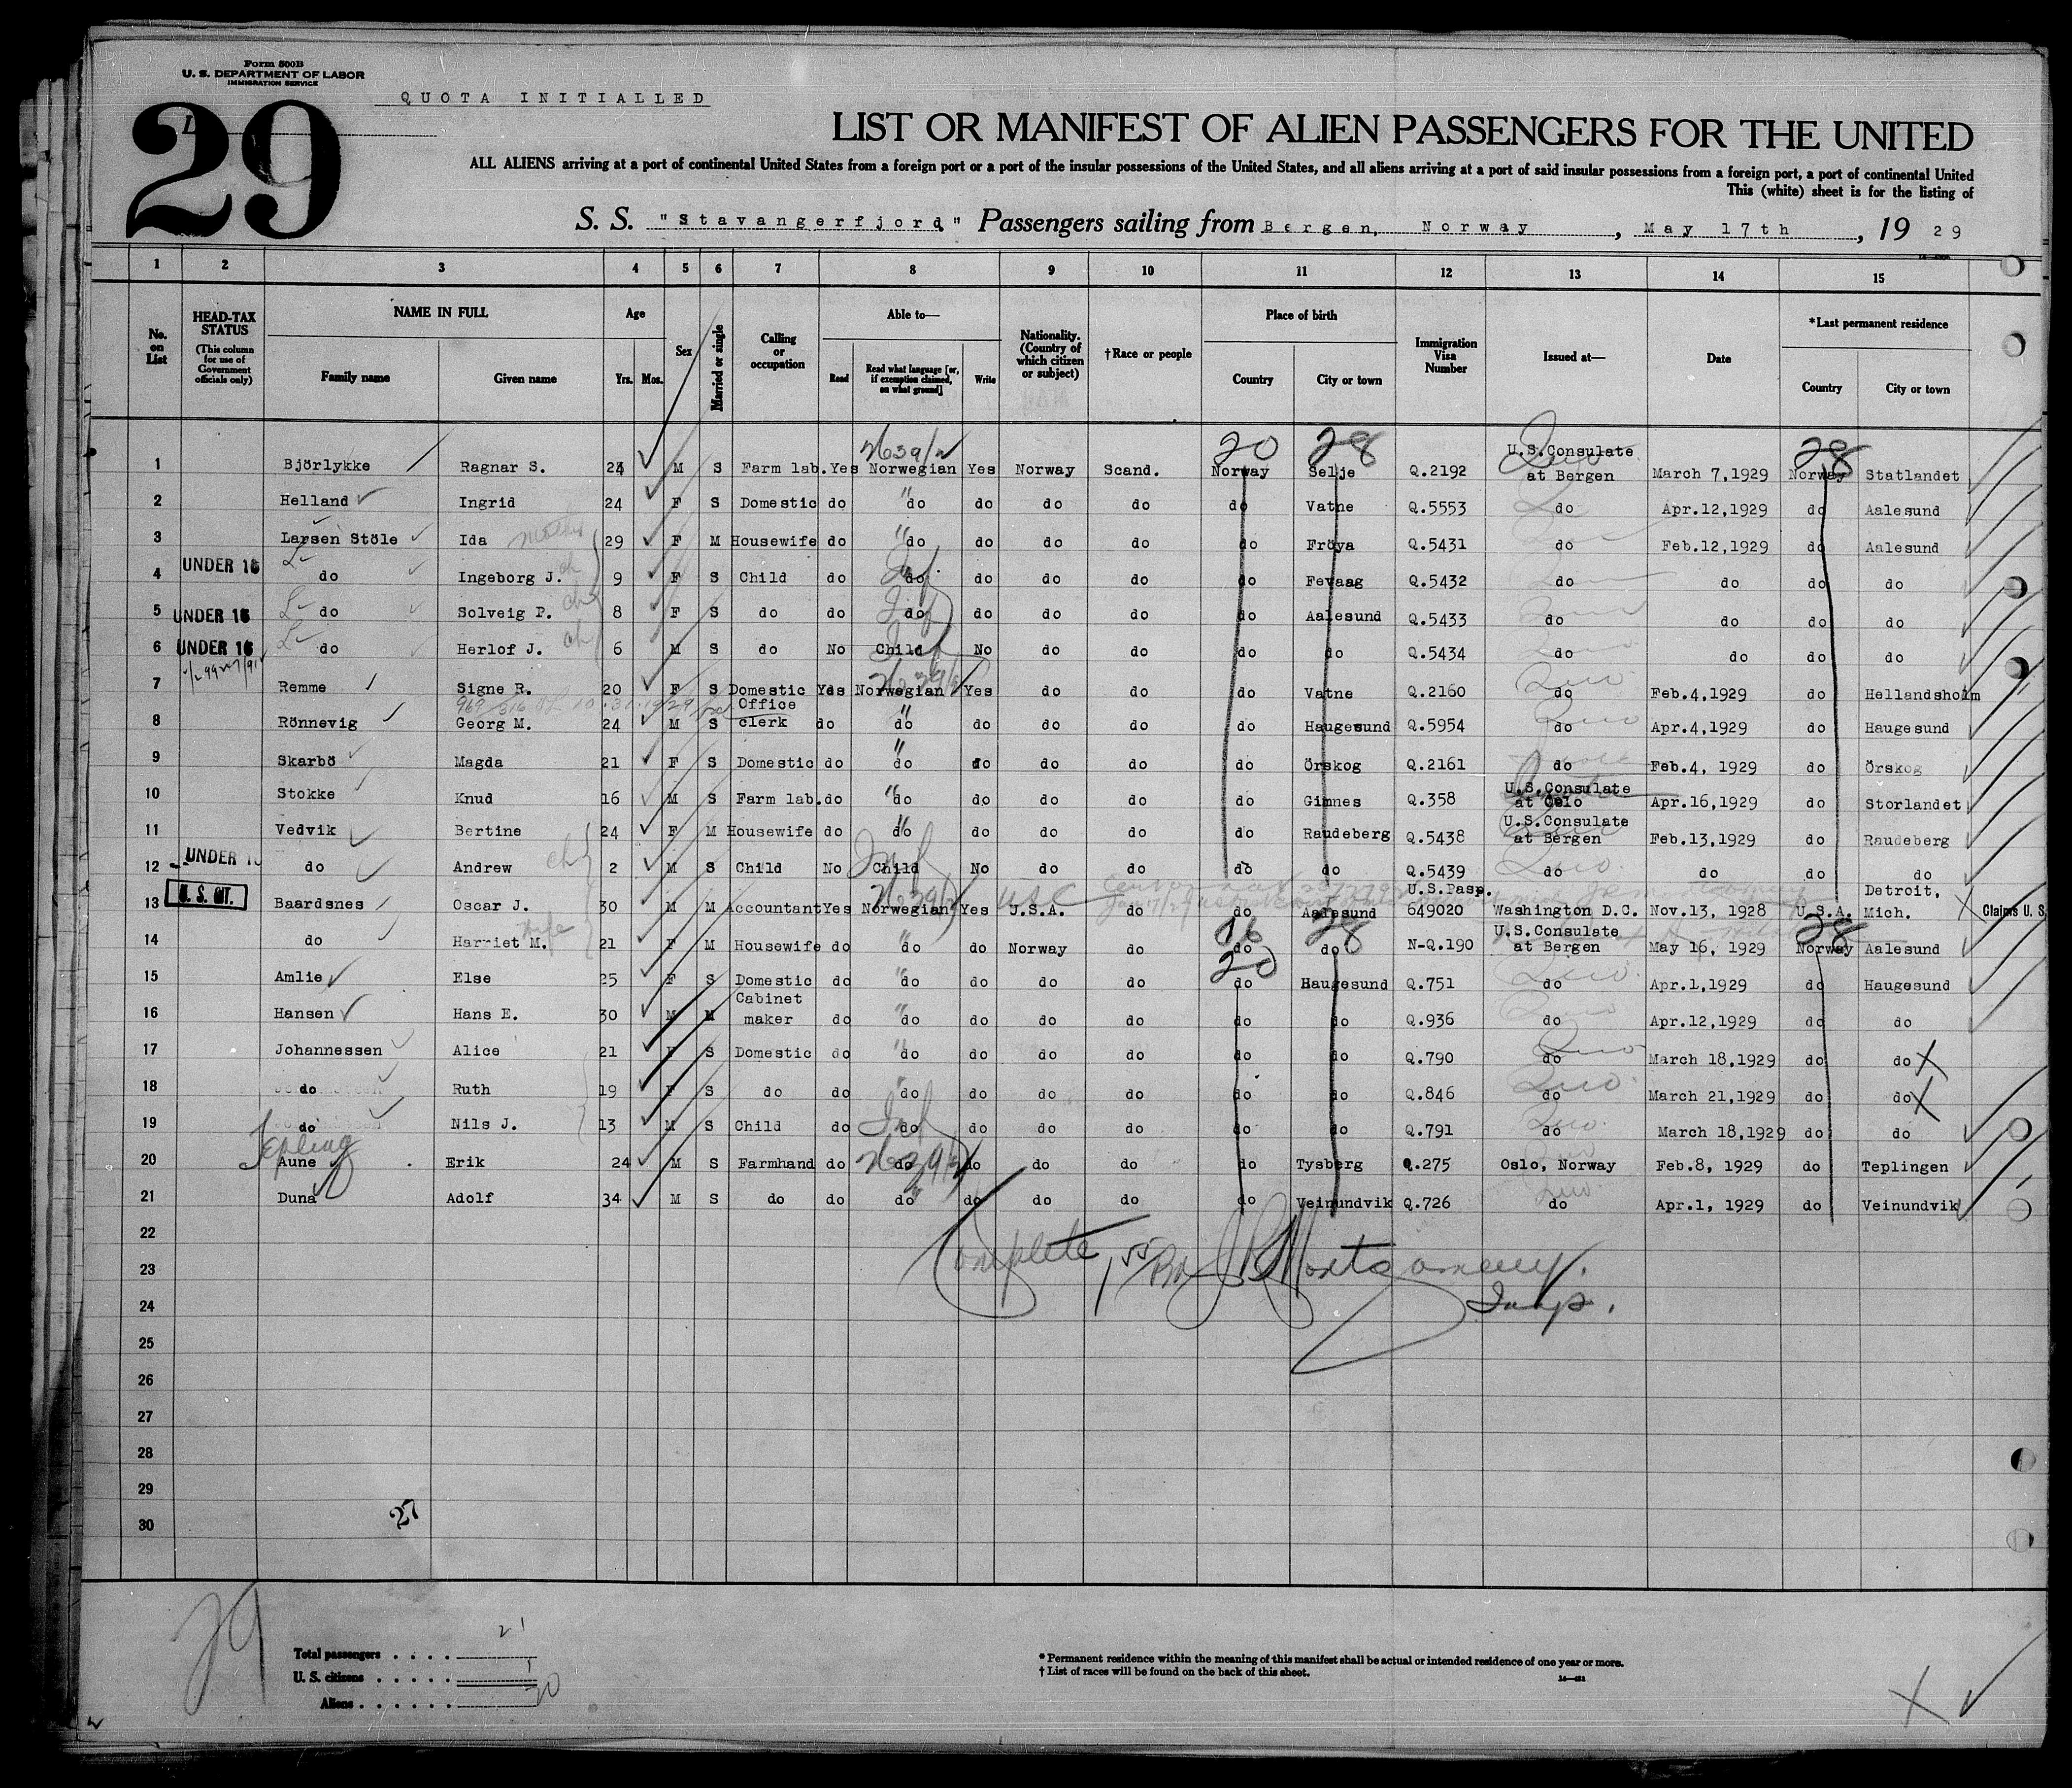 Form 500B
U. S. DEPARTMENT OF LABOR
IMMIGRATION SERVICE
QUOTA INITIALLED
29
LIST OR MANIFEST OF ALIEN PASSENGERS FOR THE UNITED
ALL ALIENS arriving at a port of continental United States from a foreign port or a port of the insular possessions of the United States, and all aliens arriving at a port of said insular possessions from a foreign port, a port of continental United
This (white) sheet is for the listing of
S. S. "Stavangerfjord," Passengers sailing from Bergen, Norway, May 17th, 1929
1 2 3 4 5 6 7 8 9 10 11 12 13 14 15
No. on List
HEAD-TAX STATUS (This column for use of Government officials only)
NAME IN FULL Family name Given name
Age Yrs. Mos.
Sex
Married or single
Calling or occupation
Able to— Read Read what language [or, if exemption claimed, on what ground] Write
Nationality. (Country of which citizen or subject)
†Race or people
Place of birth Country City or town
Immigration Visa Number
Issued at—
Date
*Last permanent residence Country City or town
20 28 28
1 Björlykke Ragnar S. 24 M S Farm lab. Yes Norwegian Yes Norway Scand. Norway Selje Q.2192 U.S.Consulate at Bergen March 7,1929 Norway Statlandet
2 Helland Ingrid 24 F S Domestic do " do do do do do Vatne Q.5553 do Apr.12,1929 do Aalesund
3 Larsen Stöle Ida mother 29 F M Housewife do " do do do do do Fröya Q.5431 do Feb.12,1929 do Aalesund
4 UNDER 16 do Ingeborg J. ch 9 F S Child do do do do do do Fevaag Q.5432 do do do do
5 UNDER 16 do Solveig P. ch 8 F S do do do do do do do Aalesund Q.5433 do do do do
6 UNDER 16 do Herlof J. ch 6 M S do No Child No do do do do Q.5434 do do do do
7 Remme Signe R. 20 F S Domestic Yes Norwegian Yes do do do Vatne Q.2160 do Feb.4,1929 do Hellandsholm
8 Rönnevig Georg M. 24 M S Office clerk do " do do do do do Haugesund Q.5954 do Apr.4,1929 do Haugesund
9 Skarbö Magda 21 F S Domestic do " do do do do do Örskog Q.2161 do Feb.4, 1929 do Örskog
10 Stokke Knud 16 M S Farm lab. do " do do do do do Gimnes Q.358 U.S.Consulate at Oslo Apr.16,1929 do Storlandet
11 Vedvik Bertine 24 F M Housewife do " do do do do do Raudeberg Q.5438 U.S.Consulate at Bergen Feb.13,1929 do Raudeberg
12 UNDER 16 do Andrew ch 2 M S Child No Child No do do do do Q.5439 do do do do
13 U. S. CIT. Baardsnes Oscar J. 30 M M Accountant Yes Norwegian Yes USC U.S.A. do do Aalesund U.S.Pasp. 649020 Washington D.C. Nov.13, 1928 U.S.A. Detroit, Mich. X Claims U. S.
16 28 28
14 do Harriet M. wife 21 F M Housewife do " do do Norway do do do N-Q.190 U.S.Consulate at Bergen May 16, 1929 Norway Aalesund
20
15 Amlie Else 25 F S Domestic do " do do do do do Haugesund Q.751 do Apr.1,1929 do Haugesund
16 Hansen Hans E. 30 M M Cabinet maker do " do do do do do do Q.936 do Apr.12,1929 do do
17 Johannessen Alice 21 F S Domestic do " do do do do do do Q.790 do March 18,1929 do do X
18 do Ruth 19 F S do do " do do do do do do Q.846 do March 21,1929 do do X
19 do Nils J. 13 M S Child do do do do do do do Q.791 do March 18,1929 do do
Tepling
20 Aune Erik 24 M S Farmhand do do do do do do Tysberg Q.275 Oslo, Norway Feb.8, 1929 do Teplingen
21 Duna Adolf 34 M S do do " do do do do do Veinundvik Q.726 do Apr.1, 1929 do Veinundvik
22
Complete 1 55 PM J R Montgomery.
23
24 Insp.
25
26
27
28
29
27
30
29
Total passengers . . . . 21
U. S. citizens . . . . . 1
Aliens . . . . . . 20
* Permanent residence within the meaning of this manifest shall be actual or intended residence of one year or more.
† List of races will be found on the back of this sheet.
X